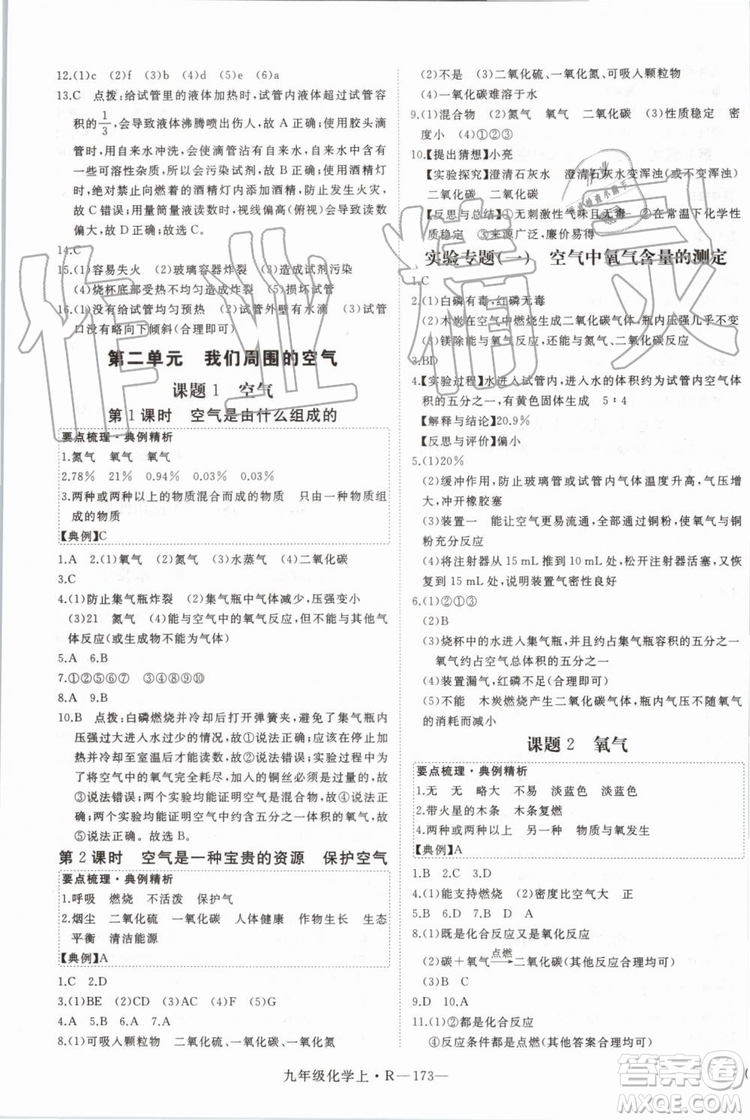 12.(1)c (2)f (3)b (4)d (5)e (6)a
13.C 点拨:给试管里的液体加热时,试管内液体体
积的1/3,会导致液体沸腾喷出伤人,故A正确;胶头滴
管用完后,用自来水冲洗,会导致自来水中含有
一些可溶性杂质,会污染试剂,故B错误;酒精灯
去引燃燃着的酒精灯会使酒精洒出,发生火灾,
故C错误;用量筒量液读数时,视线偏高(俯视)会导致读数
偏大,故D正确。故选C。
14.C
15.(1)容易失火 (2)玻璃容器炸裂 (3)造成试剂污染
(4)烧杯底部受热不均匀造成炸裂 (5)损坏试管
16.(1)没有给试管均匀预热 (2)试管外壁有水滴 (3)试管
口没有略向下倾斜(合理即可)
第二单元 我们周围的空气
课题1 空气
第1课时 空气是由什么组成的
要点梳理·典例精析
1.氮气 氧气 氧气
2.78% 21% 0.94% 0.03% 0.03%
3.两种或两种以上的物质混合而成的物质 只由一种物质组
成的物质
【典例】C
1.A 2.(1)氧气 (2)氮气 (3)水蒸气 (4)二氧化碳
3.C
4.(1)防止集气瓶炸裂 (2)集气瓶中气体减少,压强减小
(3)21 氮气 (4)能与空气中的氧气反应,不与其他气体
反应(或生成物不能为气体)
5.A 6.B
7.①②⑤⑥⑦ ③④⑧⑨⑩
8.A 9.B
10.B 点拨:白磷燃烧并冷却后打开弹簧夹,避免了集气瓶内
压强过大进入的水过少的情况,故①说法正确;实验中为
了将空气中的氧气完全耗尽,加入的铜丝必须是过量的,故
②说法正确;两个实验均能证明空气是混合物,不能证明空
气中含有二氧化碳,故③说法错误;两个实验均能证明空气
是混合物,故④说法正确。故选B。
第2课时 空气是一种宝贵的资源 保护空气
要点梳理·典例精析
1.呼吸 燃烧 不活泼 保护气
2.烟尘 二氧化硫 一氧化碳 人体健康 作物生长 生态
平衡 清洁能源
【典例】A
1.C 2.D
3.(1)BE (2)CD (3)AF (4)G
4.A 5.B 6.D 7.D
8.(1)可吸入颗粒物 二氧化硫、一氧化碳、二氧化氮
(2)不是 (3)二氧化硫、一氧化氮、可吸入颗粒物
(4)一氧化碳难溶于水
9.(1)混合物 (2)氮气 氧气 二氧化碳 (3)性质稳定 密
度小 (4)①②③
10.【提出猜想】小亮
【实验探究】澄清石灰水 澄清石灰水变浑浊(或不变浑浊)
二氧化碳 二氧化碳
【反思与总结】①无刺激性气味且无毒 ②常温下化学性
质稳定 ③来源广泛,廉价易得
实验专题(一) 空气中氧气含量的测定
1.C
2.(1)白磷有毒,红磷无毒
(2)木炭在空气中燃烧生成二氧化碳气体,压强几乎不变
(3)镁除能与氧气反应外,还能与氮气反应
3.BD
4.【实验过程】水进入试管内,试管内水的体积约为试管内空气
体积的五分之一,有黄色固体生成 5∶4
【解释与结论】20.9%
【反思与评价】偏小
5.(1)15%
(2)缓冲作用,防止玻璃管或试管内气体温度升高,气压增大,
冲开橡胶塞
(3)装置一 能使空气更易流通,全部通过铜粉,使氧气与铜粉
充分反应
(4)将注射器从15 mL推到10 mL处,松开注射器活塞,又
返回至15 mL处,说明装置气密性良好
6.(1)②①③
(2)B
(3)烧杯中的水进入集气瓶,进入的水约占空气体积的五分之一
氧气约占空气总体积的五分之一
(4)装置漏气,红磷的量不足等
(5)不能 木炭燃烧产生二氧化碳气体,瓶内气压不因氧气
的消耗而减小
课题2 氧气
要点梳理·典例精析
1.无 无 略大 不易 淡蓝色 淡蓝色
2.带火星的木条 木条复燃
4.两种或两种以上 另一种 物质与氧发生
【典例】A
1.B 2.C 3.D 4.D
5.(1)能支持燃烧 (2)密度比空气大 正
6.B 7.D
8.(1)既是化合反应又是氧化反应
(2)碳+氧气—点燃→二氧化碳(其他答案合理均可)
(3)CD
9.D 10.A
11.(1)②③④都是化合反应
④反应条件不是点燃(其他答案合理均可)
九年级化学上·R—173—
作业精灵
答案圈